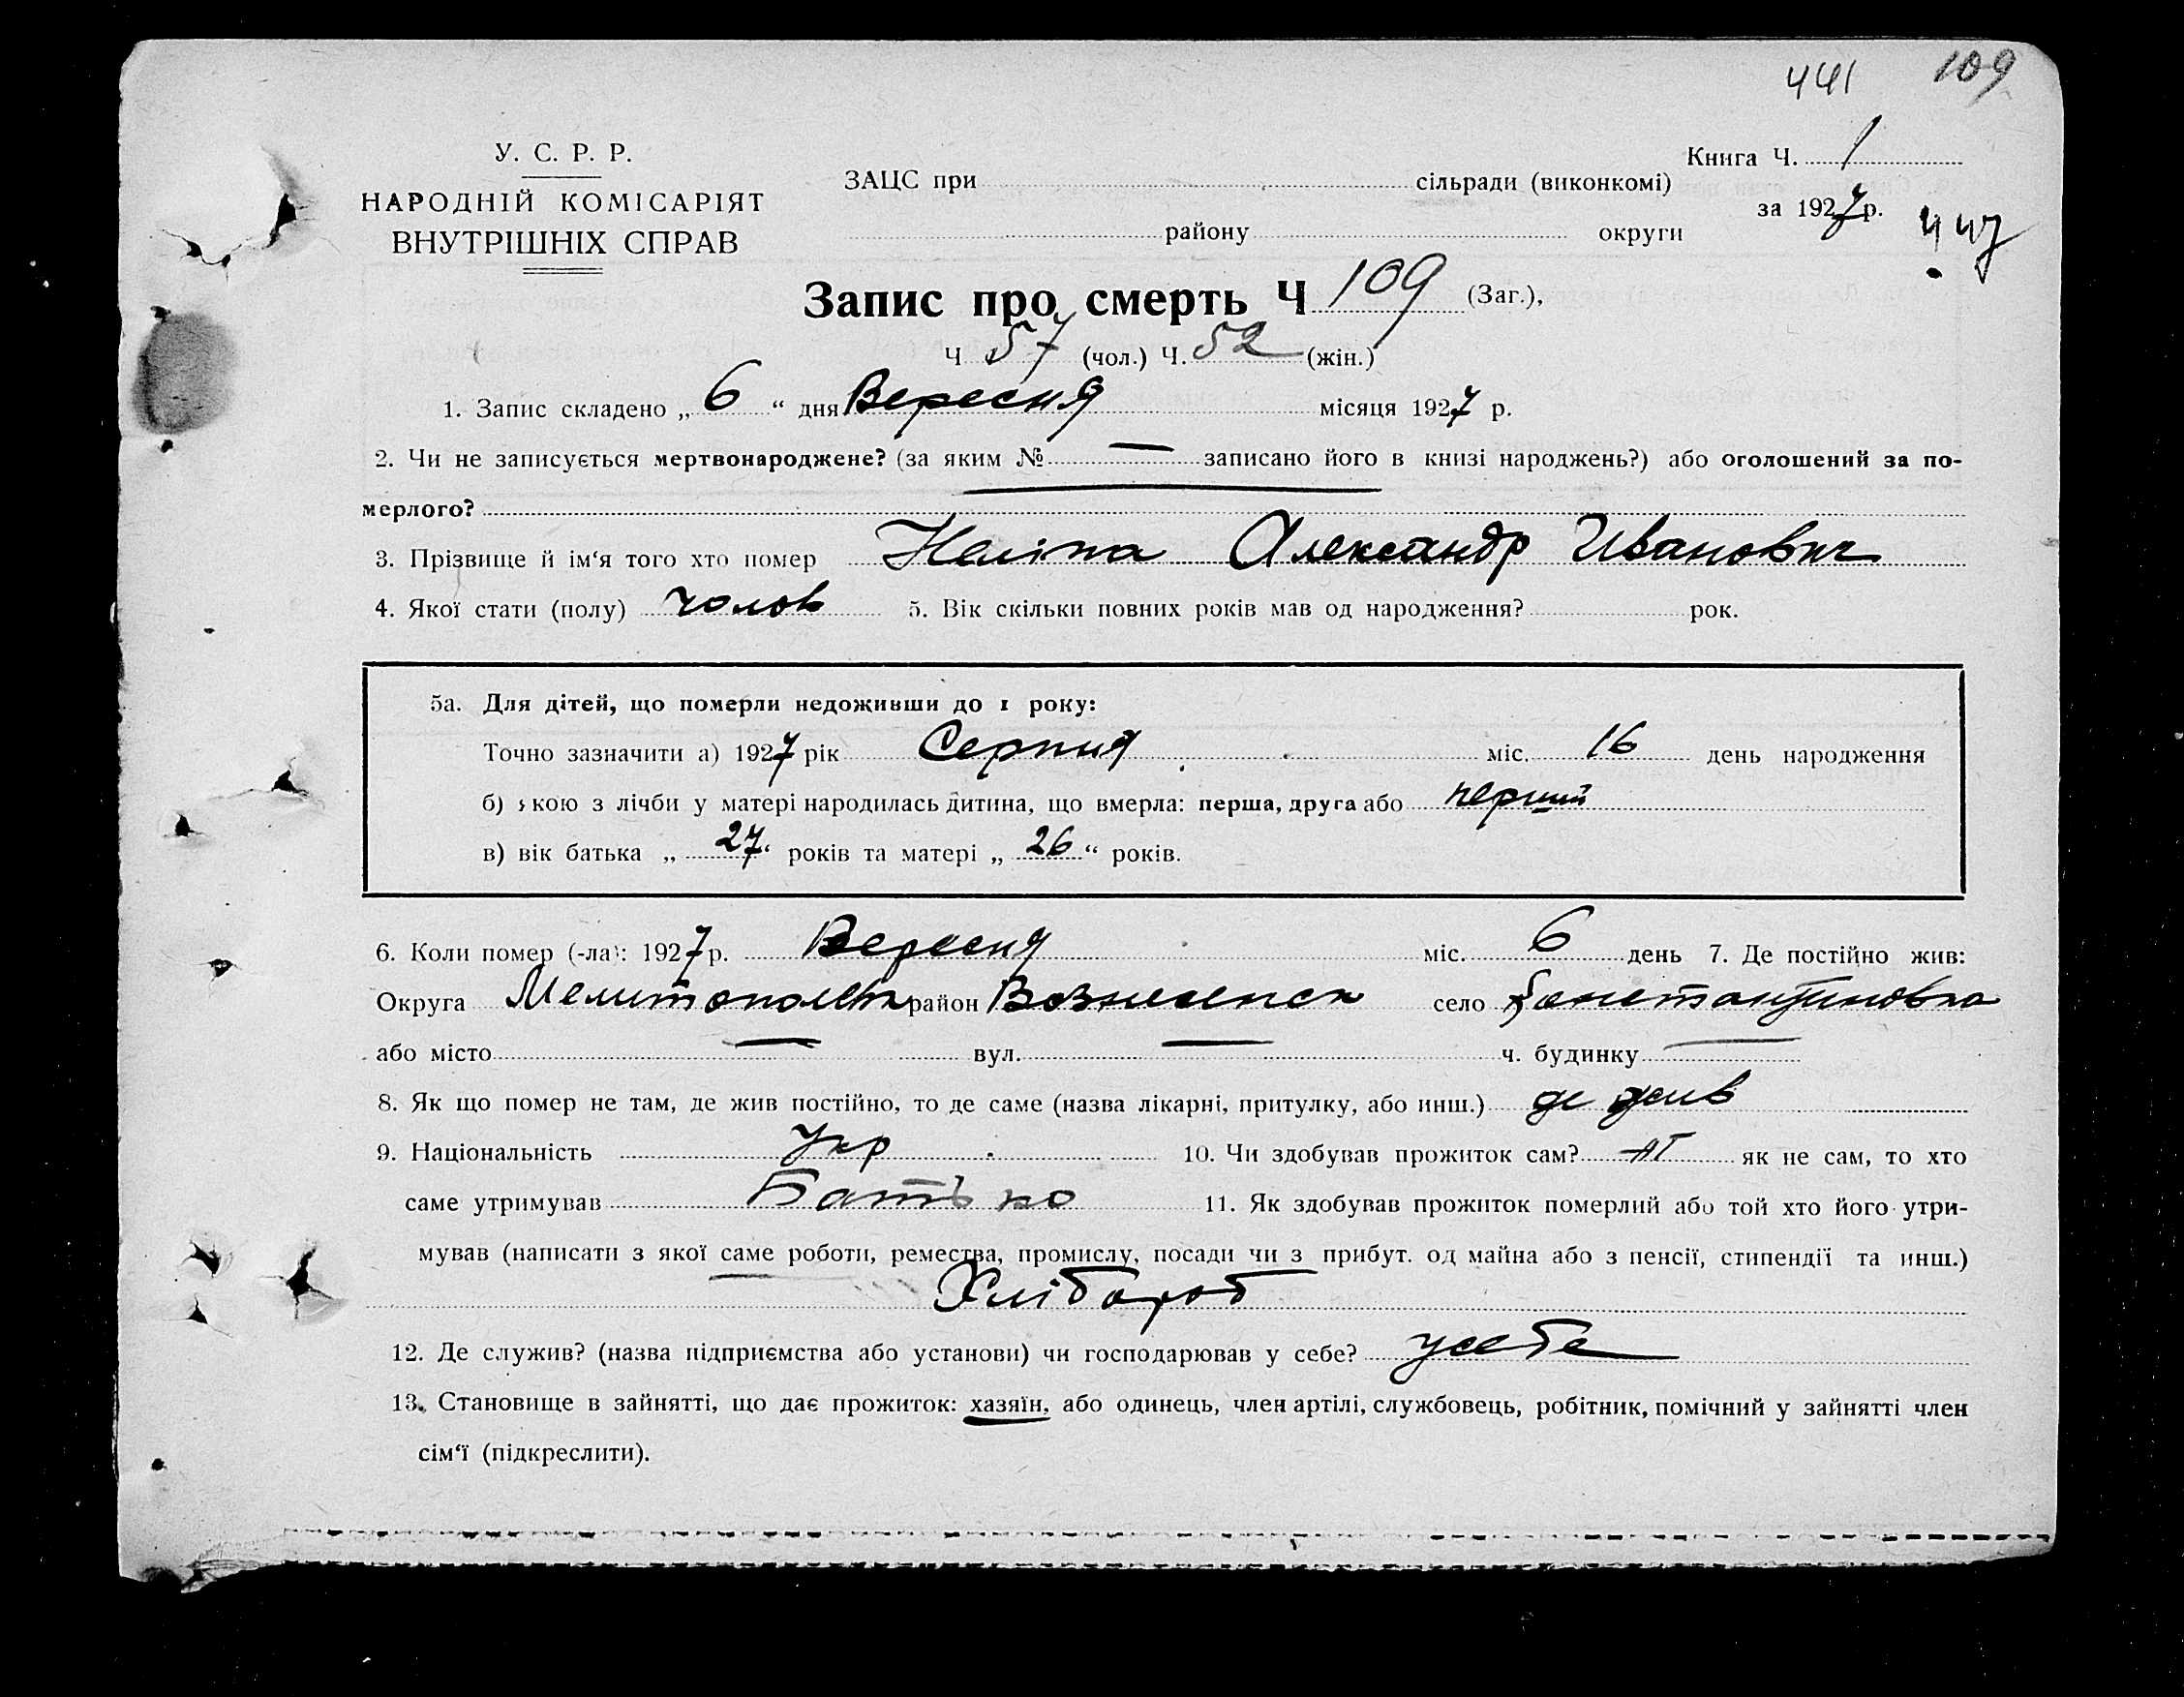 441 109
У. С. Р. Р.
НАРОДНІЙ КОМІСАРІЯТ
ВНУТРІШНІХ СПРАВ
Книга Ч. 1
ЗАЦС при сільради (виконкомі)
за 1927 р.
447
району округи
Запис про смерть Ч 109 (Заг.),
Ч 57 (чол.) Ч. 52 (жін.)
1. Запис складено „ 6 “ дня Вересня місяця 1927 р.
2. Чи не записується мертвонароджене? (за яким № — записано його в книзі народжень?) або оголошений за по-
мерлого?
3. Прізвище й ім‘я того хто помер Неліпа Александр Иванович
4. Якої стати (полу) чолов 5. Вік скільки повних років мав од народження? рок.
5а. Для дітей, що померли недоживши до 1 року:
Точно зазначити а) 1927 рік Серпня міс. 16 день народження
б) якою з лічби у матері народилась дитина, що вмерла: перша, друга або перший
в) вік батька „ 27 “ років та матері „ 26 “ років.
6. Коли помер (-ла): 1927 р. Вересня міс. 6 день 7. Де постійно жив:
Округа район Вознесенск село Константиновка
або місто — вул. — ч. будинку —
8. Як що помер не там, де жив постійно, то де саме (назва лікарні, притулку, або инш.) де жив
9. Національність Укр 10. Чи здобував прожиток сам? як не сам, то хто
саме утримував Батько 11. Як здобував прожиток померлий або той хто його утри-
мував (написати з якої саме роботи, ремества, промислу, посади чи з прибут. од майна або з пенсії, стипендії та инш.)
Хлібороб
12. Де служив? (назва підприємства або установи) чи господарював у себе? усебе
13. Становище в зайнятті, що дає прожиток: хазяїн, або одинець, член артілі, службовець, робітник, помічний у зайнятті член
сім‘ї (підкреслити).